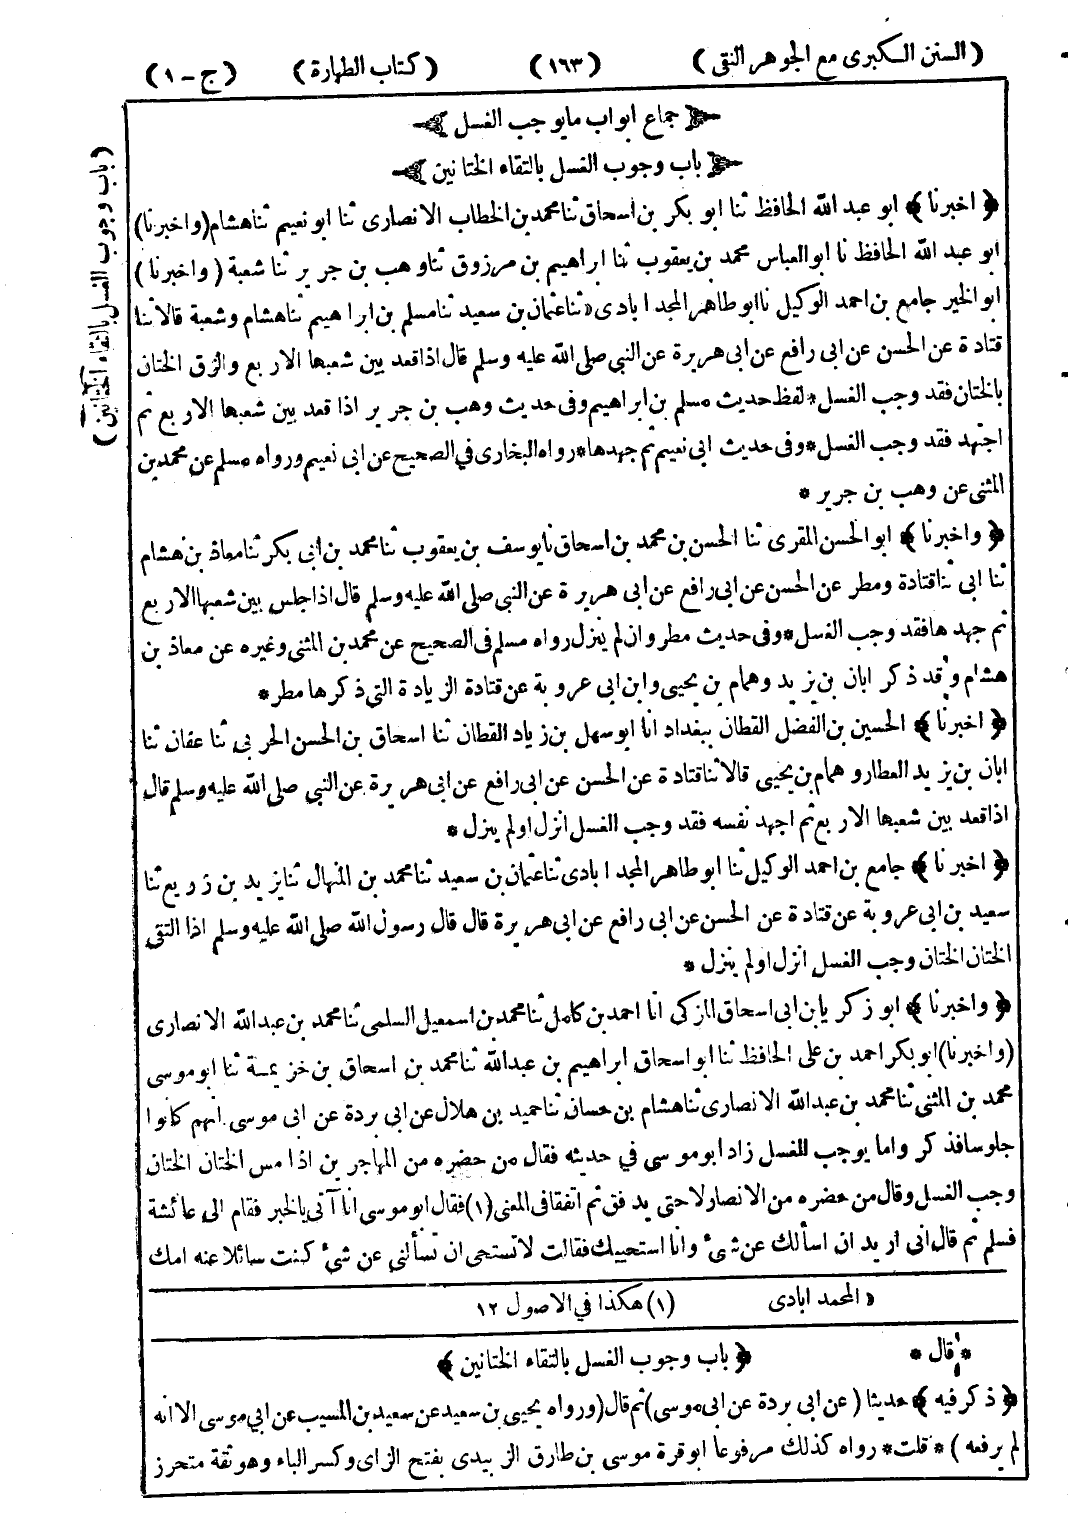 ( السنن الكبرى مع الجوهر النقى ) ( ١٦٣ ) ( كتاب الطهارة ) ( ج - ١ )
جماع ابواب مايوجب الغسل
باب وجوب الغسل بالتقاء الختانين
﴿ اخبرنا ﴾ ابو عبد الله الحافظ ثنا ابو بكر بن اسحاق ثنا محمد بن الخطاب الانصارى ثنا ابو نعيم ثنا هشام (واخبرنا)
ابو عبد الله الحافظ نا ابو العباس محمد بن يعقوب ثنا ابراهيم بن مرزوق ثنا وهب بن جرير ثنا شعبة ( واخبرنا )
ابو الخير جامع بن احمد الوكيل نا ابو طاهر المجد ابادى « ثنا عثمان بن سعيد ثنا مسلم بن ابراهيم ثنا هشام وشعبة قالا ثنا
قتادة عن الحسن عن ابى رافع عن ابى هريرة عن النبى صلى الله عليه وسلم قال اذا قعد بين شعبها الاربع والزق الختان
بالختان فقد وجب الغسل * لفظ حديث مسلم بن ابراهيم وفى حديث وهب بن جرير اذا قعد بين شعبها الاربع ثم
اجتهد فقد وجب الغسل * وفى حديث ابى نعيم ثم جهدها * رواه البخارى في الصحيح عن ابى نعيم ورواه مسلم عن محمد بن
المثنى عن وهب بن جرير *
﴿ واخبرنا ﴾ ابو الحسن المقرى ثنا الحسن بن محمد بن اسحاق نا يوسف بن يعقوب ثنا محمد بن ابى بكر ثنا معاذ بن هشام
ثنا ابى ثنا قتادة ومطر عن الحسن عن ابى رافع عن ابى هريرة عن النبى صلى الله عليه وسلم قال اذا جلس بين شعبها الاربع
ثم جهدها فقد وجب الغسل * وفى حديث مطر وان لم ينزل رواه مسلم فى الصحيح عن محمد بن المثنى وغيره عن معاذ بن
هشام وقد ذكر ابان بن يزيد وهمام بن يحيى وابن ابى عروبة عن قتادة الزيادة التى ذكرها مطر *
﴿ اخبرنا ﴾ الحسين بن الفضل القطان ببغداد انا ابو سهل بن زياد القطان ثنا اسحاق بن الحسن الحربي ثنا عفان ثنا
ابان بن يزيد العطار وهمام بن يحيى قالا ثنا قتادة عن الحسن عن ابى رافع عن ابى هريرة عن النبى صلى الله عليه وسلم قال
اذا قعد بين شعبها الاربع ثم اجهد نفسه فقد وجب الغسل انزل اولم ينزل *
﴿ اخبرنا ﴾ جامع بن احمد الوكيل ثنا ابو طاهر المجد ابادى ثنا عثمان بن سعيد ثنا محمد بن المنهال ثنا يزيد بن زريع ثنا
سعيد بن ابى عروبة عن قتادة عن الحسن عن ابى رافع عن ابى هريرة قال قال رسول الله صلى الله عليه وسلم اذا التقى
الختان الختان وجب الغسل انزل اولم ينزل *
﴿ واخبرنا ﴾ ابو زكريا بن ابى اسحاق المزكى انا احمد بن كامل ثنا محمد بن اسمعيل السلمى ثنا محمد بن عبد الله الانصارى
(واخبرنا) ابو بكر احمد بن على الحافظ ثنا ابو اسحاق ابراهيم بن عبد الله ثنا محمد بن اسحاق بن خزيمة ثنا ابو موسى
محمد بن المثنى ثنا محمد بن عبد الله الانصارى ثنا هشام بن حسان ثنا حميد بن هلال عن ابى بردة عن ابى موسى انهم كانوا
جلوسا فذكروا ما يوجب الغسل زاد ابو موسى في حديثه فقال من حضره من المهاجرين اذا مس الختان الختان
وجب الغسل وقال من حضره من الانصار لا حتى يدفق ثم اتفقا فى المعنى (١) فقال ابو موسى انا آتى بالخبر فقام الى عائشة
فسلم ثم قال انى اريد ان اسألك عن شئ وانا استحييك فقالت لا تستحى ان تسألنى عن شئ كنت سائلا عنه امك
« المحمد ابادى (١) هكذا في الاصول ١٢
* قال * ﴿ باب وجوب الغسل بالتقاء الختانين ﴾
﴿ ذكر فيه ﴾ حديثا ( عن ابى بردة عن ابى موسى ) ثم قال ( ورواه يحيى بن سعيد عن سعيد بن المسيب عن ابى موسى الا انه
لم يرفعه ) * قلت * رواه كذلك مرفوعا ابو قرة موسى بن طارق الزبيدى بفتح الزاى وكسر الباء وهو ثقة متحرز
( باب وجوب الغسل بالتقاء الختانين )